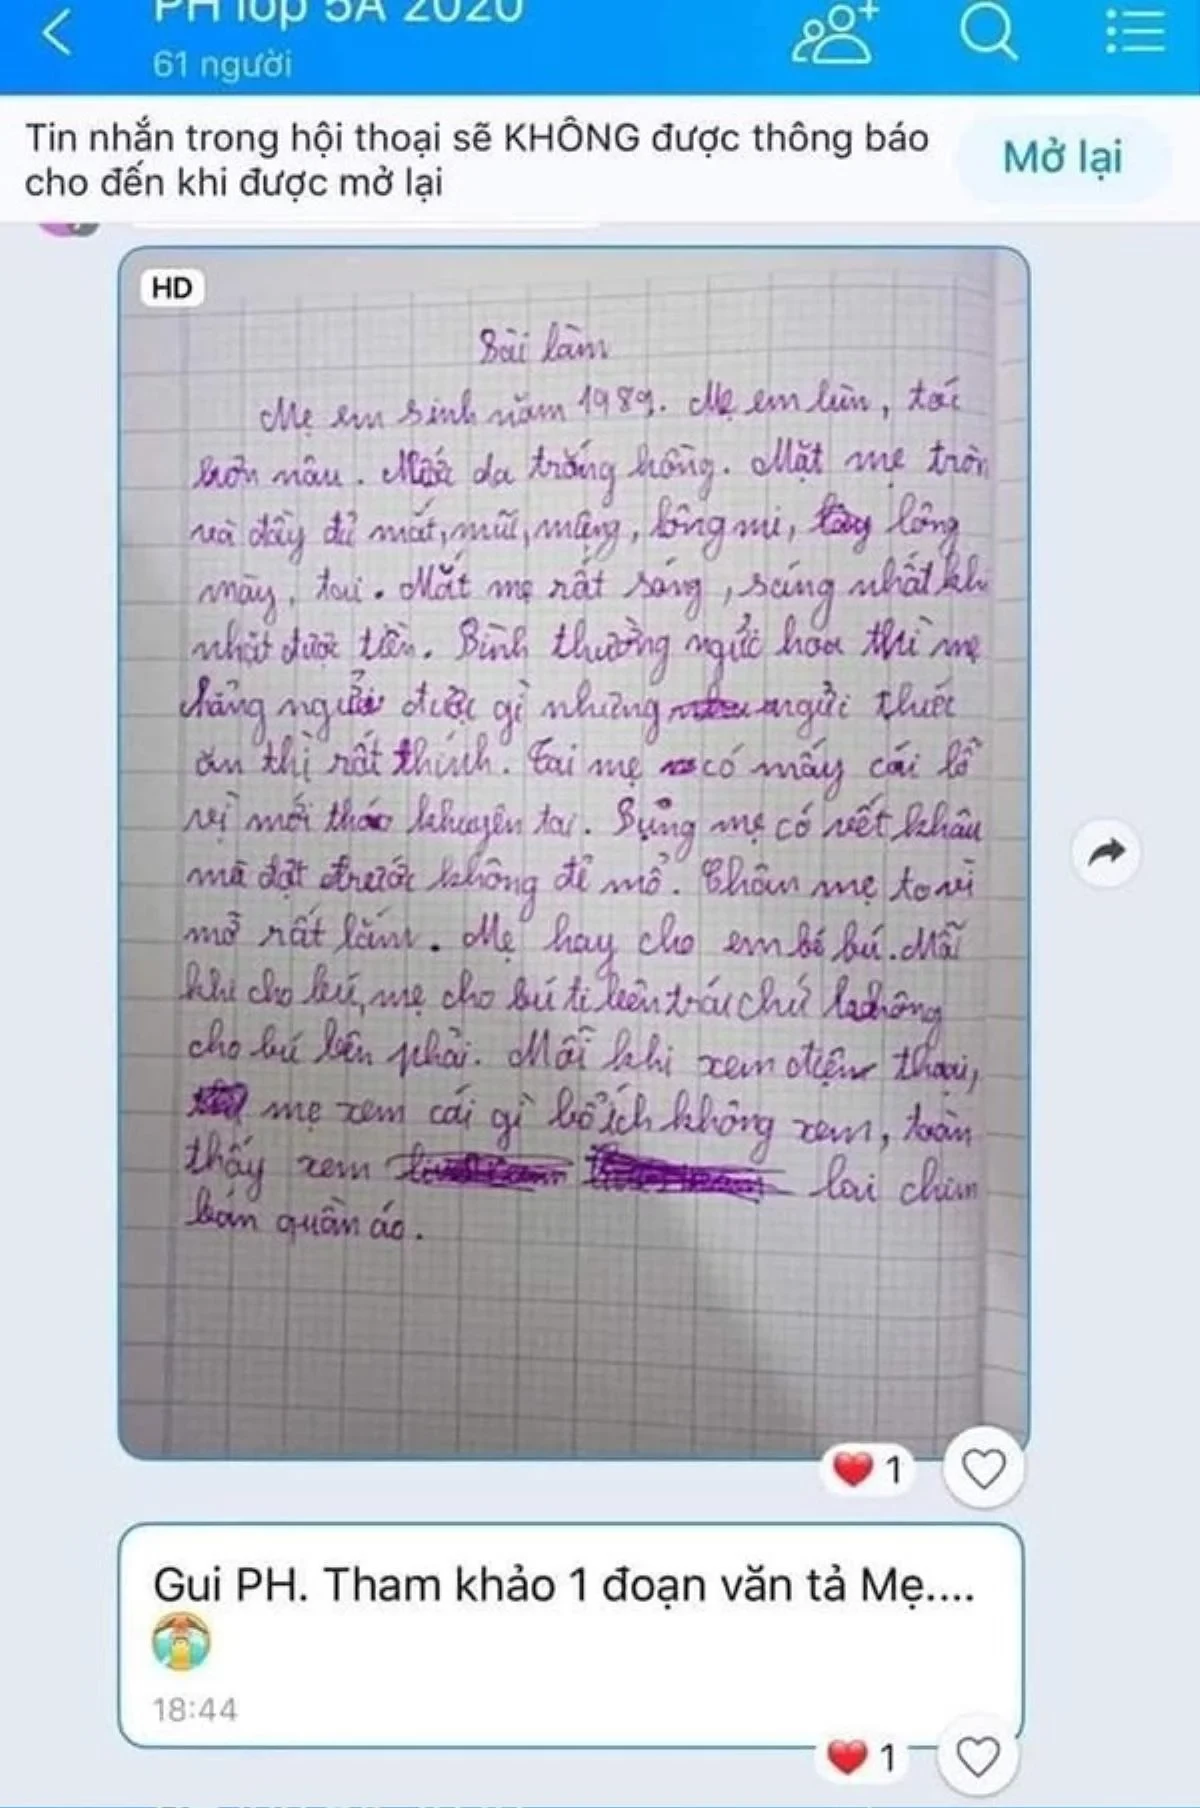 PH lớp 5A 2020
61 người
Tin nhắn trong hội thoại sẽ KHÔNG được thông báo
cho đến khi được mở lại
Mở lại
HD
Bài làm
Mẹ em sinh năm 1989. Mẹ em lùn, tóc
màu nâu. da trắng hồng. Mặt mẹ tròn
và đầy đủ mắt, mũi, miệng, lông mi, lông
mày, tai. Mắt mẹ rất sáng, sáng nhất khi
nhặt được tiền. Bình thường ngửi hoa thì mẹ
chẳng ngửi được gì nhưng ngửi thức
ăn thì rất thính. Tai mẹ có mấy cái lỗ
vì mới tháo khuyên tai. Bụng mẹ có vết khâu
mà đợt trước không đẻ mổ. Chân mẹ to vì
mỡ rất lắm. Mẹ hay cho em bé bú. Mỗi
khi cho bú, mẹ cho bú ti bên trái chứ không
cho bú bên phải. Mỗi khi xem điện thoại,
mẹ xem cái gì bổ ích không xem, toàn
thấy xem lai chim
bán quần áo.
1
Gui PH. Tham khảo 1 đoạn văn tả Mẹ....
18:44
1